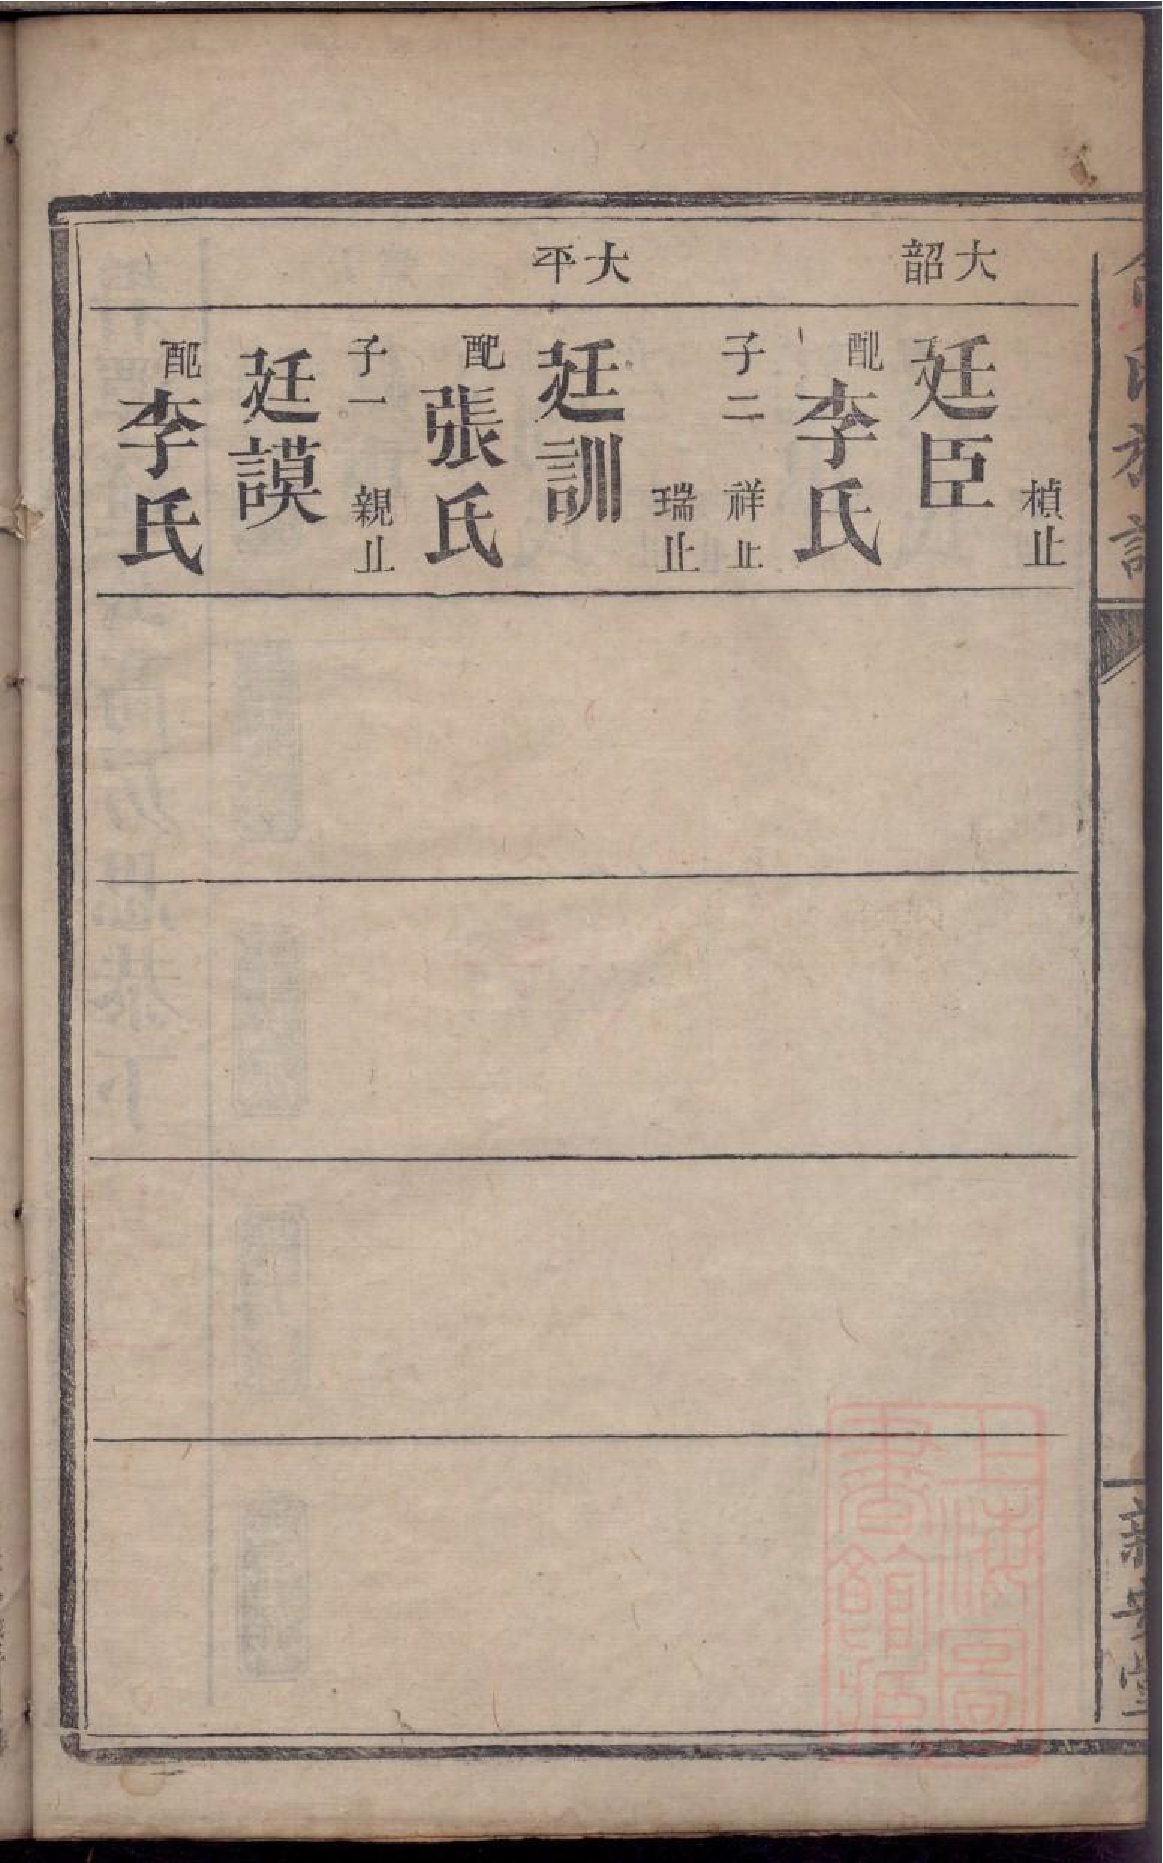 大韶
大平
楨止
廷臣
配李氏
子二 祥止
瑞止
廷訓
配張氏
子一 親止
廷謨
配李氏
上海圖
書館藏